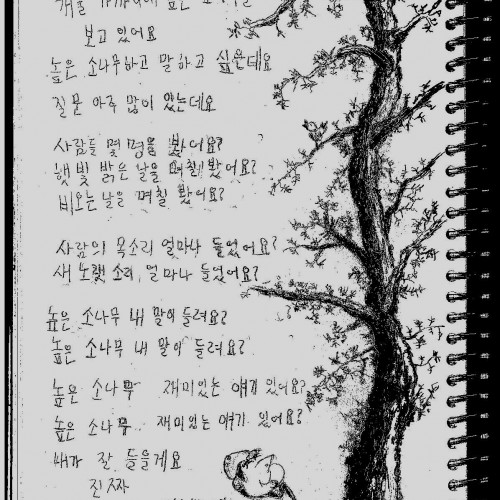 보고 있어요
높은 소나무하고 말하고 싶은데요
질문 아주 많이 있는데요
사람들 몇 명을 봤어요?
햇빛 밝은 날을 며칠 봤어요?
비오는 날을 며칠 봤어요?
사람의 목소리 얼마나 들었어요?
새 노랫 소리, 얼마나 들었어요?
높은 소나무 내 말이 들려요?
높은 소나무 내 말이 들려요?
높은 소나무 재미있는 얘기 있어요?
높은 소나무 재미있는 얘기 있어요?
내가 잘 들을게요
진짜